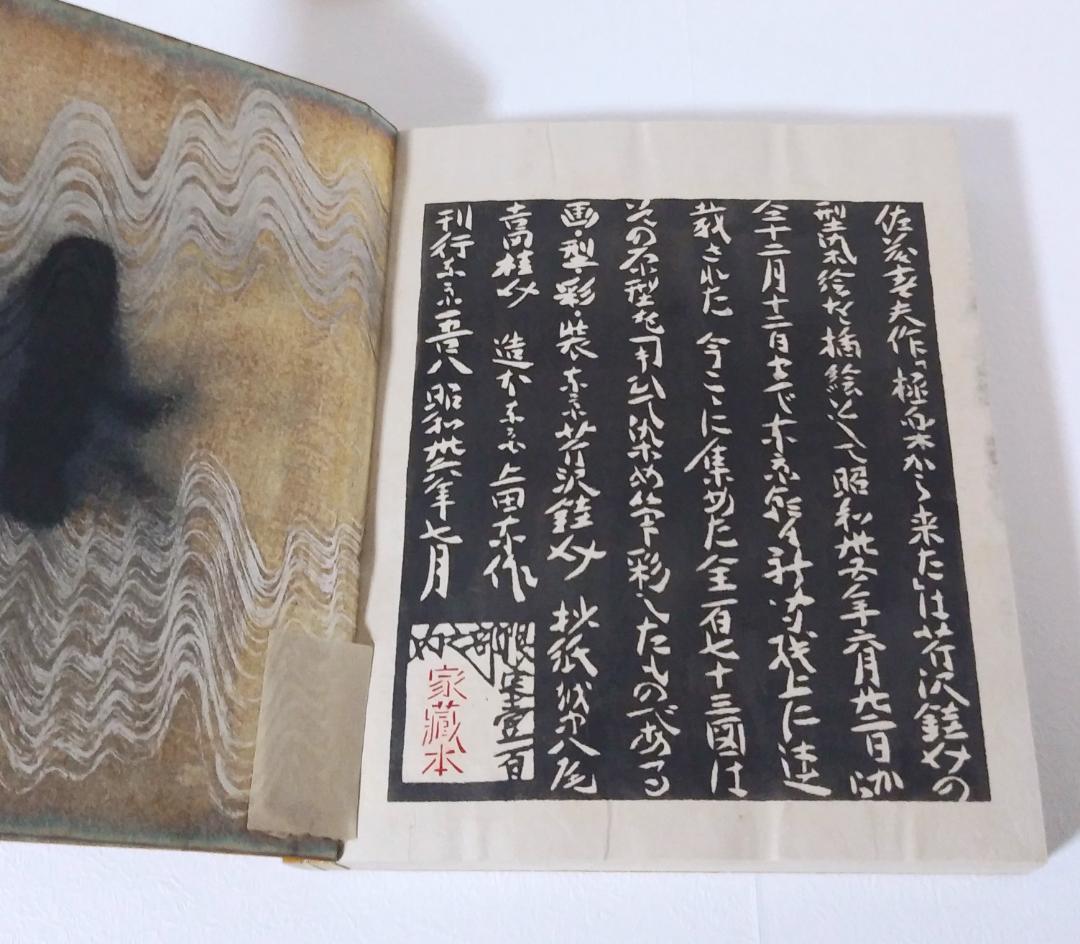 佐藤春夫作「極楽から来た」は芹沢銈介の
絵を挿絵として昭和卅五年六月廿二日か
仝十二月十二日まで東京新聞紙上に連
載された 今ここに集めた全一百七十三図は
その原型を染め筆彩したものである
画・型・彩・装 東京芹沢銈介 抄紙越中八尾
吉田桂介 造本東京上田東作
刊行東京吾八 昭和卅六年七月
限定壹百
部
家蔵本